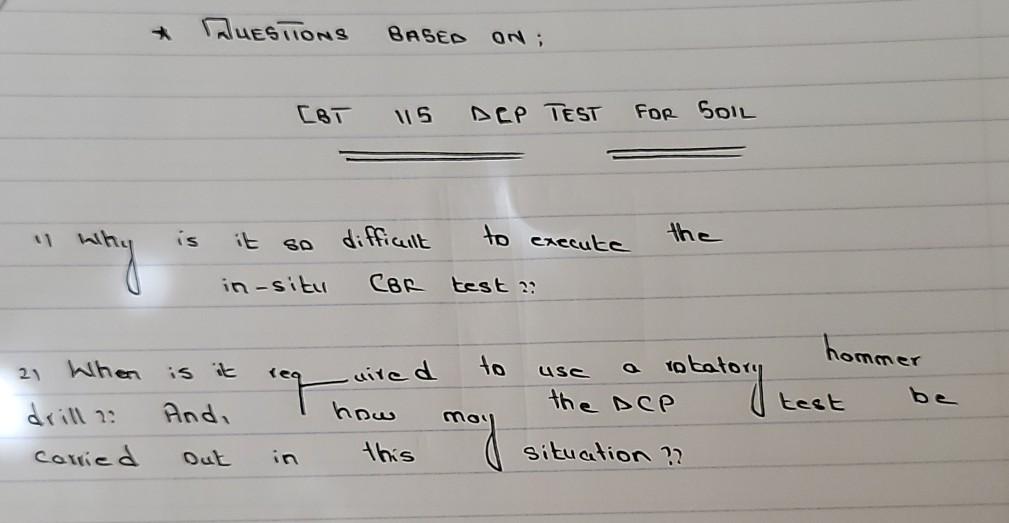 * QUESTIONS BASED ON ;
CBT 115 DCP TEST FOR SOIL
1) Why is it so difficult to execute the
in-situ CBR test ??
2) When is it required to use a rotatory hommer
drill ?? And, how may the DCP test be
carried out in this situation ??